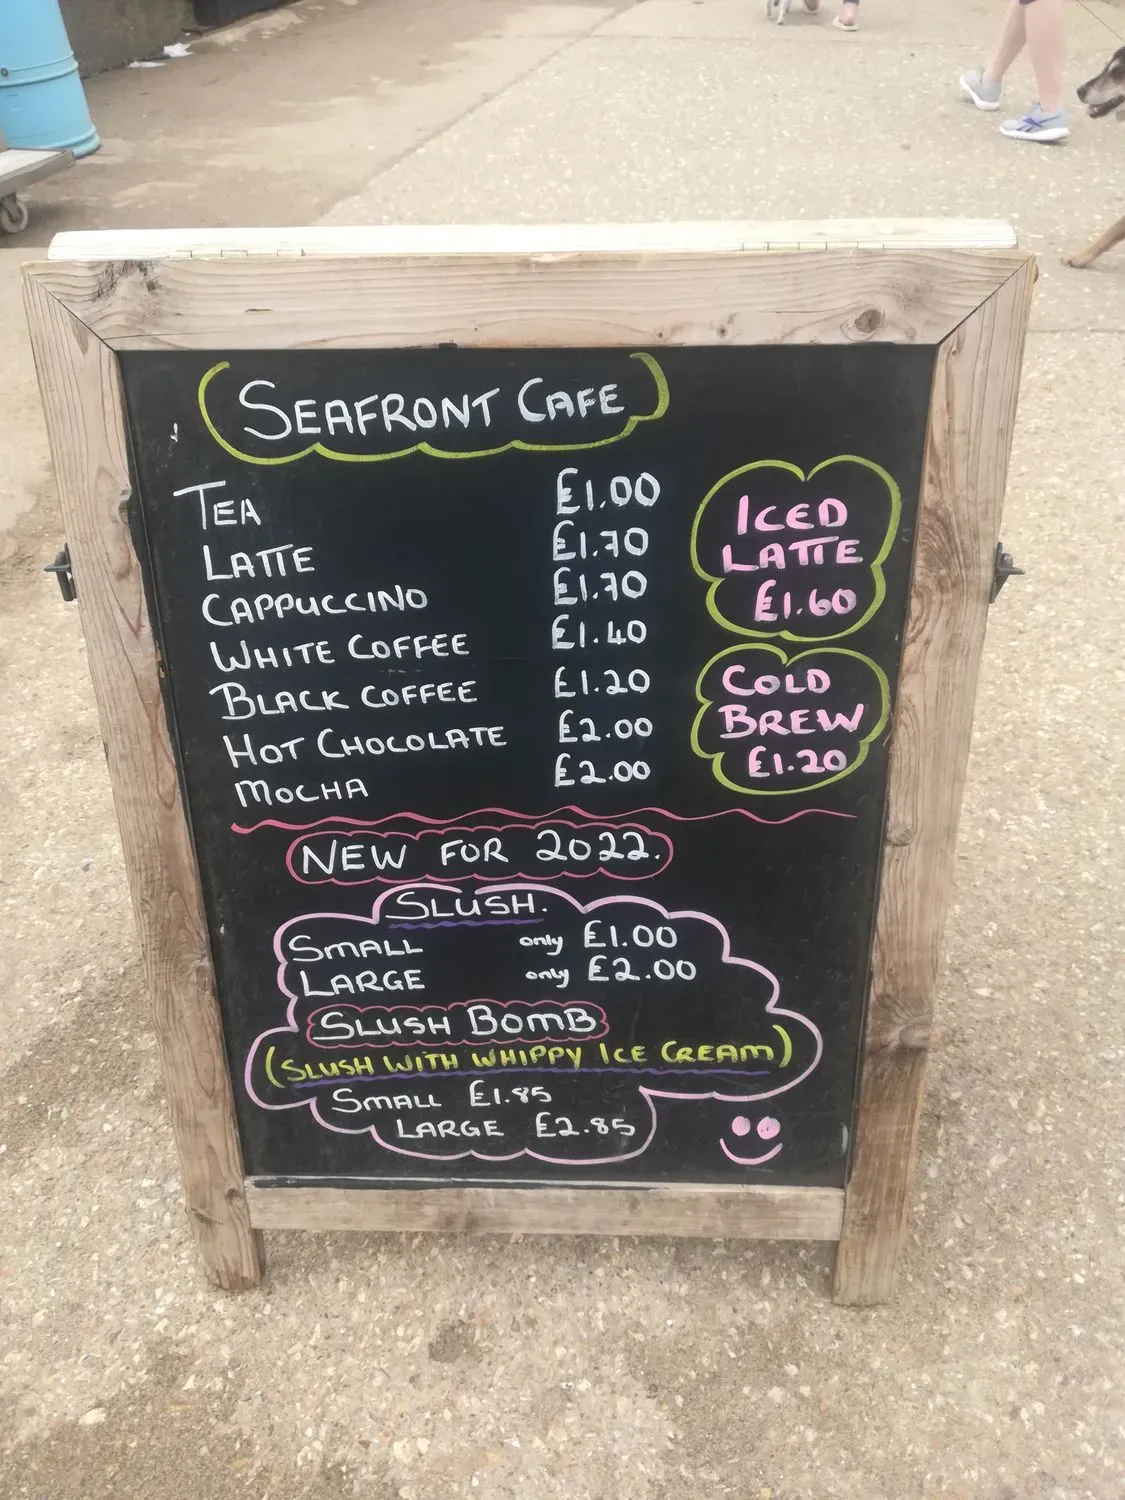 SEAFRONT CAFE
TEA £1.00
LATTE £1.70
CAPPUCCINO £1.70
WHITE COFFEE £1.40
BLACK COFFEE £1.20
HOT CHOCOLATE £2.00
MOCHA £2.00
ICED
LATTE
£1.60
COLD
BREW
£1.20
NEW FOR 2022.
SLUSH.
SMALL only £1.00
LARGE only £2.00
SLUSH BOMB
(SLUSH WITH WHIPPY ICE CREAM)
SMALL £1.85
LARGE £2.85